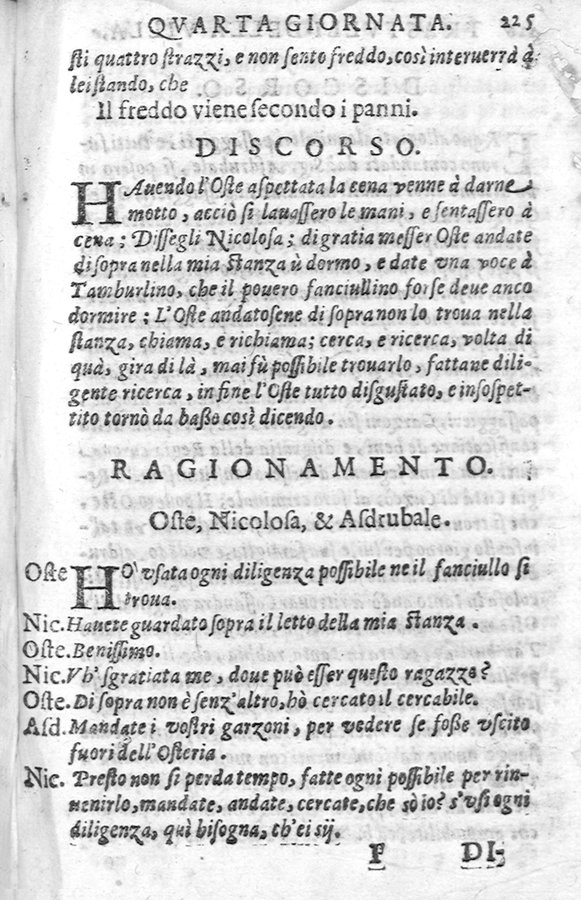 QVARTA GIORNATA. 225
sti quattro strazzi, e non sento freddo, così interuerrà à
lei stando, che
Il freddo viene secondo i panni.
DISCORSO.
HAuendo l'Oste aspettata la cena venne à darne
motto, acciò si lauassero le mani, e sentassero à
cena; Dissegli Nicolosa; di gratia messer Oste andate
di sopra nella mia stanza ù dormo, e date vna voce à
Tamburlino, che il pouero fanciullino forse deue anco
dormire: L'Oste andatosene di sopra non lo troua nella
stanza, chiama, e richiama; cerca, e ricerca, volta di
quà, gira di là, mai fù possibile trouarlo, fattane dili-
gente ricerca, in fine l'Oste tutto disgustato, e insospet-
tito tornò da basse così dicendo.
RAGIONAMENTO.
Oste, Nicolosa, & Asdrubale.
Oste HO' vsata ogni diligenza possibile ne il fanciullo si
troua.
Nic. Hauere guardato sopra il letto della mia stanza.
Oste. Benissimo.
Nic. Vh' sgratiata me, doue può esser questo ragazzo?
Oste. Di sopra non è senz'altro, hò cercato il cercabile.
Asd. Mandate i vostri garzoni, per vedere se fosse vscito
fuori dell'Osteria.
Nic. Presto non si perda tempo, fatte ogni possibile per rin-
uenirlo, mandate, andate, cercate, che sò io? s'vsi ogni
diligenza, quì bisogna, ch'ei sij.
P DI-